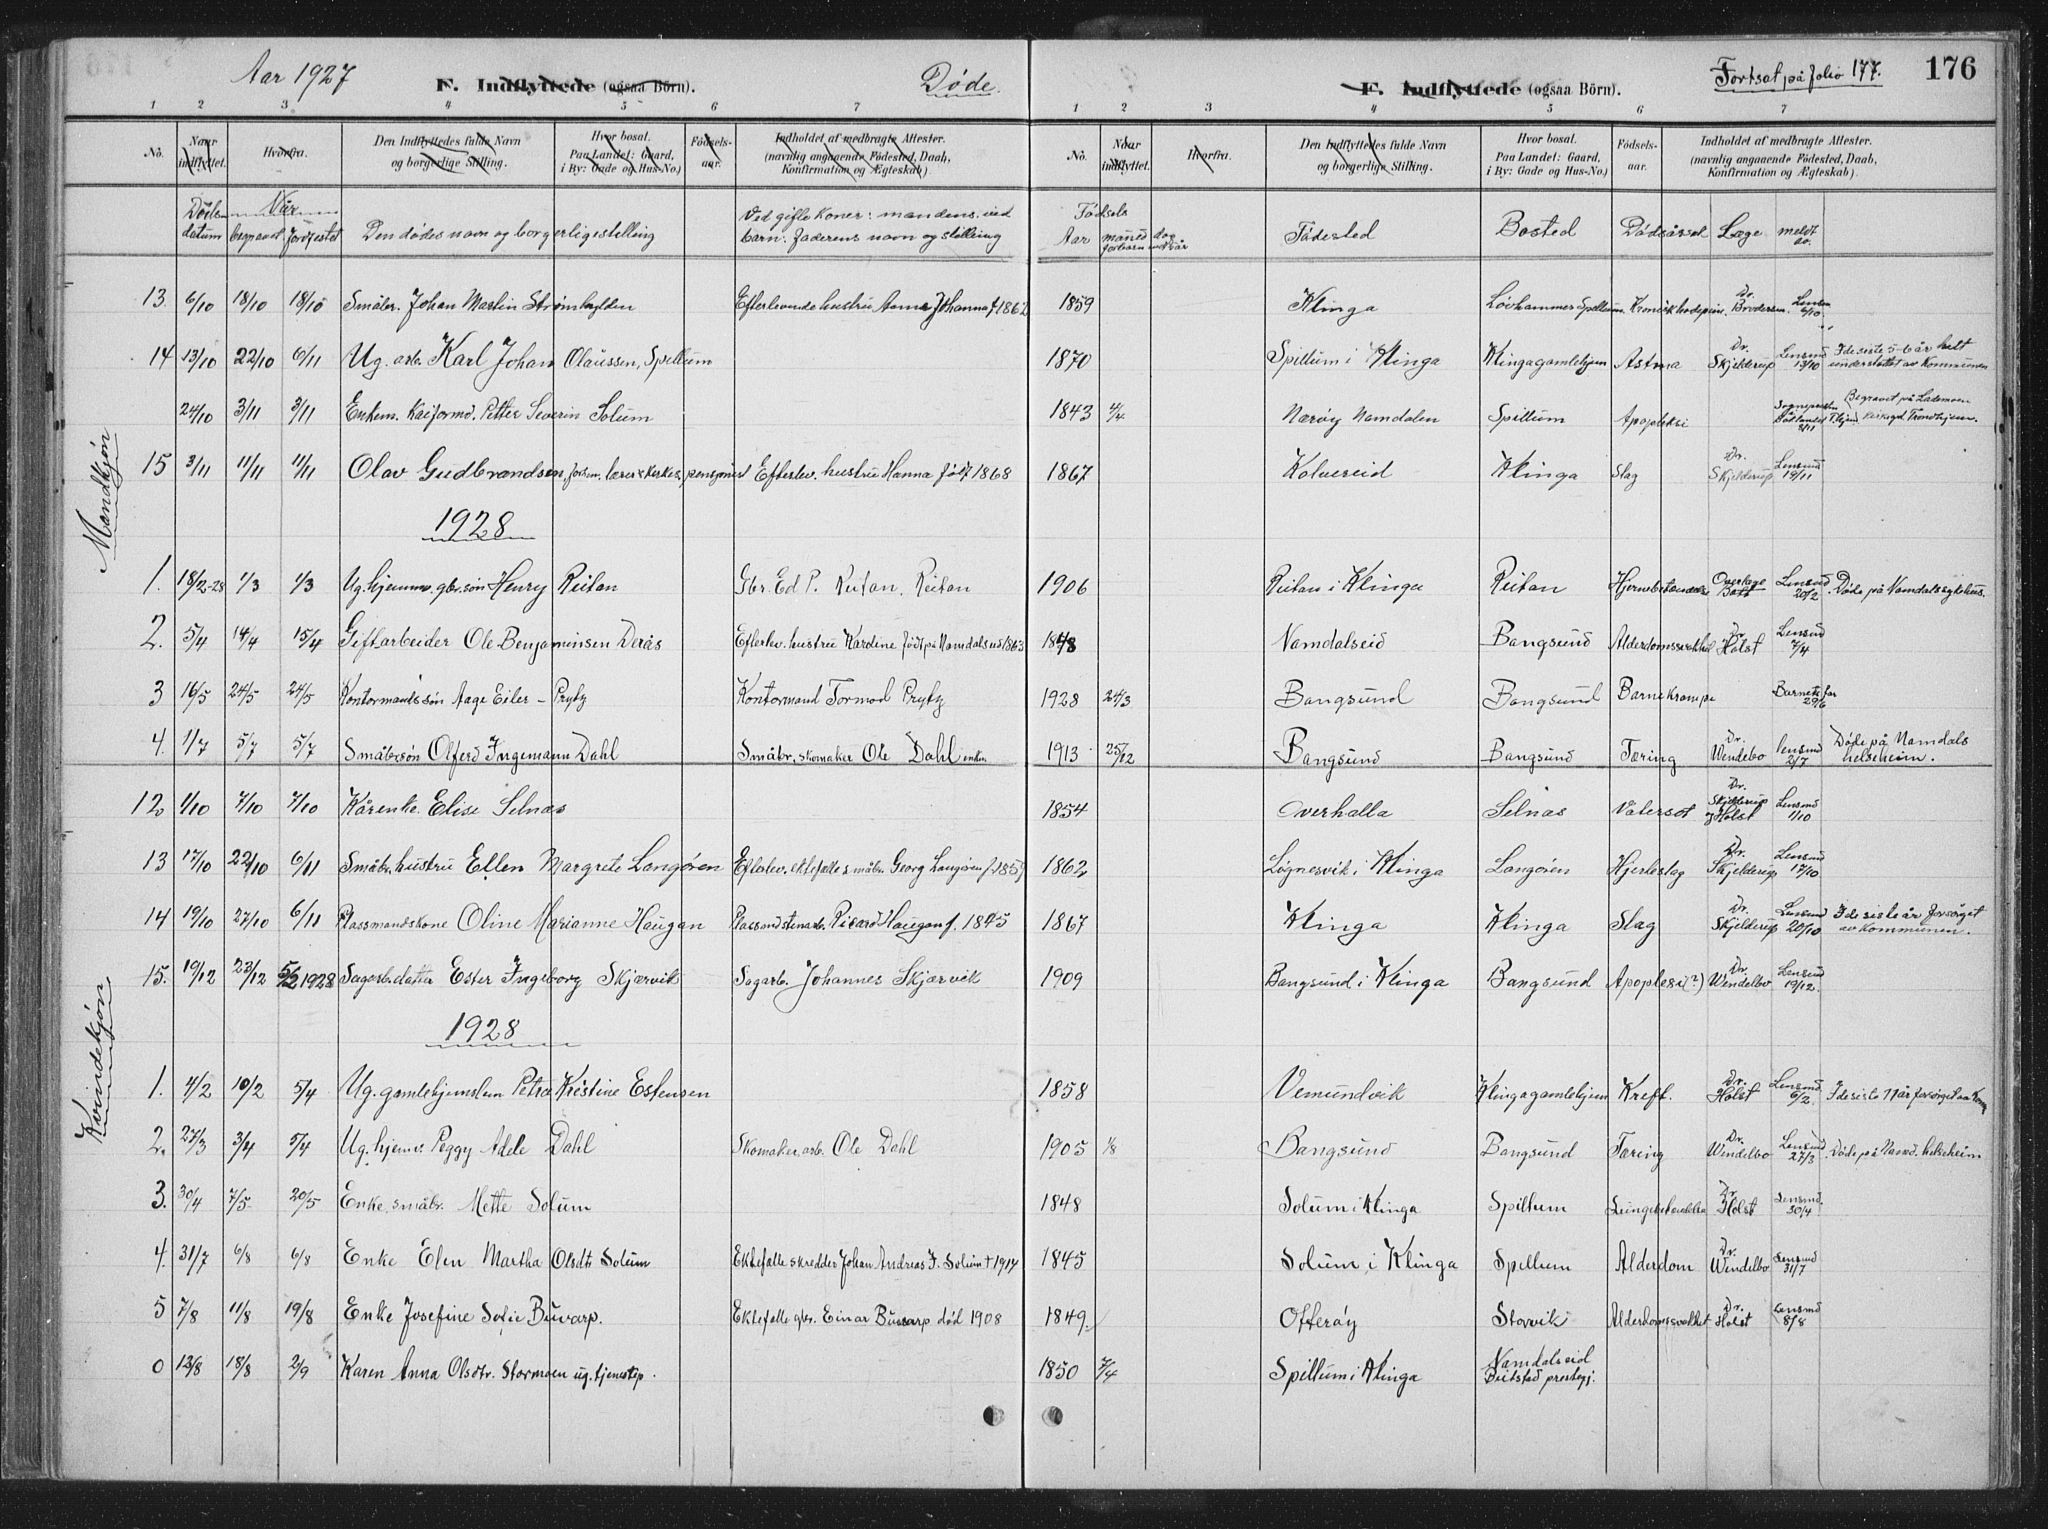 Aar 1927 F. Indflyttede (ogsaa Börn). Døde.
1 2 3 4 5 6 7
No. Naar indflyttet. Hvorfra. Den Indflyttedes fulde Navn og borgerlige Stilling. Hvor bosat. Paa Landet: Gaard, i By: Gade og Hus-No.) Födsels-aar. Indholdet af medbragte Attester. (navnlig angaaende Födested, Daab, Konfirmation og Ægteskab)
F. Indflyttede (ogsaa Börn). Fortsat på folio 177. 176
1 2 3 4 5 6 7
No. Naar indflyttet. Hvorfra. Den Indflyttedes fulde Navn og borgerlige Stilling. Hvor bosat. Paa Landet: Gaard, i By: Gade og Hus-No.) Födsels-aar. Indholdet af medbragte Attester. (navnlig angaaende Födested, Daab, Konfirmation og Ægteskab).
Døds datum Når begravet jordfestet Den dødes navn og borgerlige stilling Ved gifte koner: mandens, ved barn: faderens navn og stilling Fødsels Aar måned dag Fødested Bosted Dødsåssak Læge meldt av.
Mandkjøn
13. 6/10 18/10 18/10 Småbr. Johan Martin Strømhylden Efterlevende hustru Anna Johanna f 1862 1859 Klinga Løvhammer Spillum. Dr. Brodersen. Lensm 6/10.
14 13/10 22/10 6/11 Ug. arb. Karl Johan Olaussen, Spillum 1870 Spillum i Klinga Klinga gamlehjem Astma Dr. Skjelderup Lensmd 13/10 I de siste 5-6 år helt understøttet av Kommunen
24/10 3/11 3/11 Enkem. Petter Severin Solum 1843 4/4 Nærøy Namdalen Spillum Apopleksi 3/11 Begravet på Lademoen kirkegd Trondhjem.
15 3/11 11/11 11/11 Olav Gudbrandsen, forhen. lærer & kirkes. pensjonist Efterlev. hustru Hanna født 1868 1867 Kolvereid Klinga Slag Dr. Skjelderup Lensmd 19/11
1928
1. 18/2-28 1/3 1/3 Ug. hjemmv. gbr. søn Henry Reitan Gbr. Ed P. Reitan, Reitan 1906 Reitan i Klinga Reitan Hjernebetændelse Overlæge Lensmd 20/2 Døde på Namdal sykehus.
2. 5/4 14/4 15/4 Gift arbeider Ole Benjaminsen Derås Efterlev. hustru Kardine født på Namdalseid 1863 1848 Namdalseid Bangsund Alderdomssvakhet Dr. Holst Lensmd 7/4
3 16/5 24/5 24/5 Kontormandssøn Aage Eiler – Prytz Kontormand Tormod Prytz 1928 24/3 Bangsund Bangsund Barnekrampe Barnets far 29/6
4. 1/7 5/7 5/7 Småbr.søn Olferd Ingemann Dahl Småbr, skomaker Ole Dahl 1913 25/12 Bangsund Bangsund Tæring Dr. Wendelbo lensmd 2/7 Døde på Namdals helseheim.
Kvindekjøn
12 1/10 7/10 7/10 Kårenke Elise Selnæs 1854 Overhalla Selnæs Vatersot Dr. Skjelderup og Holst Lensmd 1/10
13 17/10 22/10 6/11 Småbr.hustru Ellen Margrete Langøren Efterlev. ektefælle småbr. Georg Langøren f 1859 1862 Løgnesvik i Klinga Langøren Hjerteslag Dr. Skjelderup Lensmd 17/10
14 19/10 27/10 6/11 Plassmandskone Oline Marianne Haugan Ricard Haugan f. 1845 1867 Klinga Klinga Slag Dr. Skjelderup Lensmd 20/10 I de siste år forsørget av kommunen.
15. 19/12 23/12 5/2 1928 Sagarb. datter Ester Ingeborg Skjærvik Sagarb. Johannes Skjærvik 1909 Bangsund i Klinga Bangsund Apoplesi (?) Dr. Wendelbo Lensmd 19/12.
1928
1. 4/2 10/2 5/4 Ug. gamlehjemslem Petra Kristine Estensen 1858 Vemundvik Klinga gamlehjem Kreft. Dr. Holst Lensmd. 6/2. I de siste 11 år forsørget av Kom
2. 27/3 3/4 5/4 Ug. hjemv. Peggy Adele Dahl Skomaker, arb. Ole Dahl 1905 1/8 Bangsund Bangsund Tæring Dr. Wendelbo Lensmd 27/3 Døde på Namd. helseheim
3. 30/4 7/5 20/5 Enke, småbr. Mette Solum 1848 Solum i Klinga Spillum Lungebetændelse Dr. Holst Lensmd. 30/4
4. 31/7 6/8 6/8 Enke Elen Martha Olsdtr Solum Ektefælle skredder Johan Andreas J. Solum † 1914 1845 Solum i Klinga Spillum Alderdom Dr. Wendelbo Lensmd 31/7
5 7/8 11/8 19/8 Enke Josefine Sofie Buvarp. Ektefælle gbr. Einar Buvarp død 1908 1849 Otterøy Storvik Alderdomssvakhet Dr. Holst Lensmd 8/8
0 12/8 18/8 2/9 Karen Anna Olsdtr. Stormoen ug. tjenestep. 1850 7/4 Spillum i Klinga Namdalseid Beitstad prestegj.